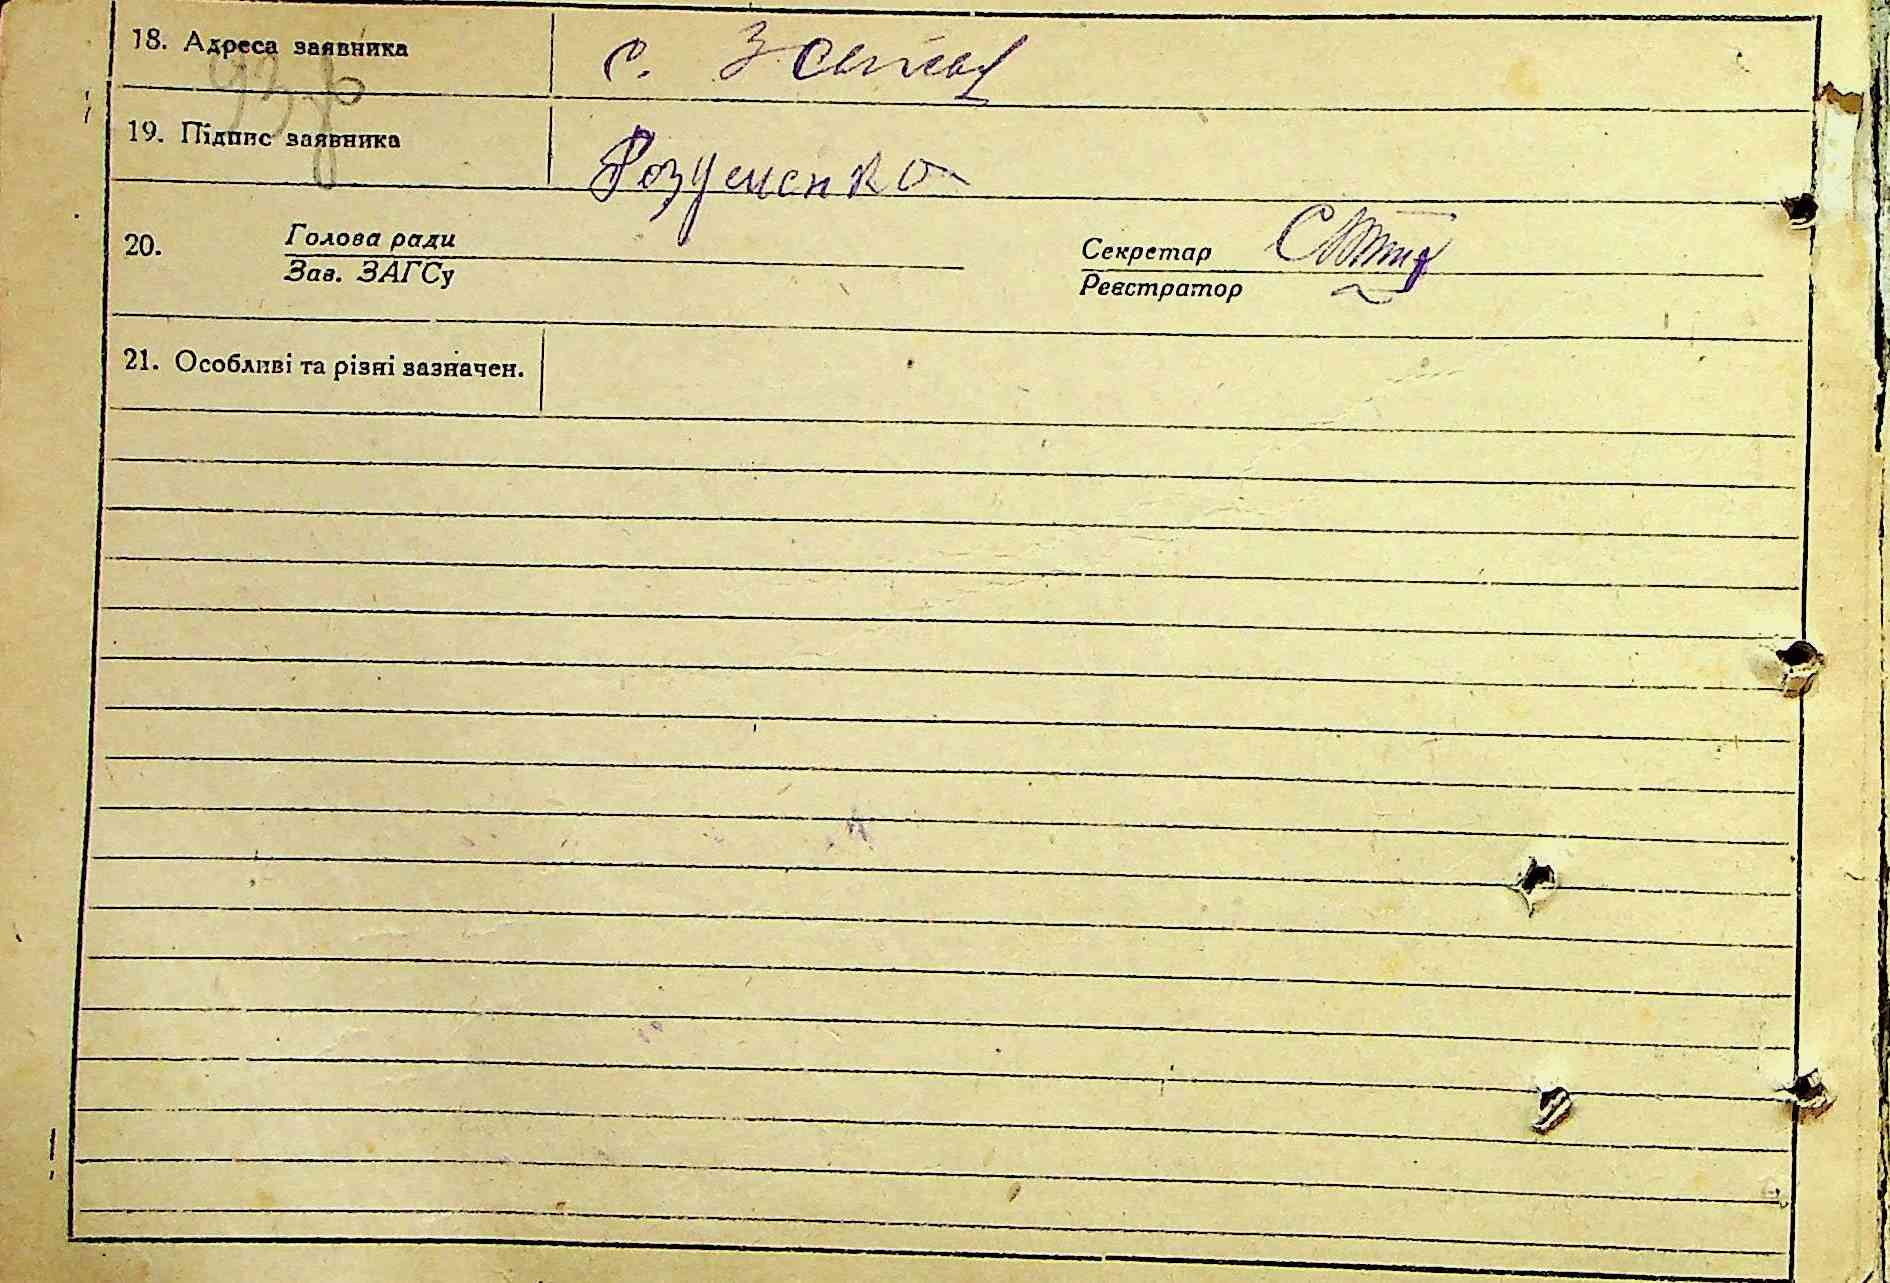 18. Адреса заявника с.
93 р
19. Підпис заявника Розуменко
20. Голова ради Секретар
Зав. ЗАГСу Реєстратор
21. Особливі та різні зазначен.